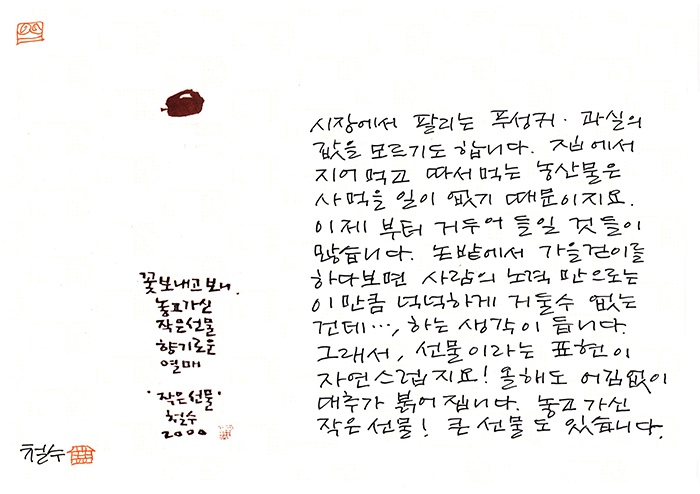 꽃보내고보니,
놓고가신
작은선물
향기로운
열매
'작은선물'
철수
2000
철수
시장에서 팔리는 푸성귀·과실의
값을 모르기도 합니다. 집에서
지어 먹고 따서 먹는 농산물은
사먹을 일이 없기 때문이지요.
이제 부터 거두어 들일 것들이
많습니다. 논밭에서 가을걷이를
하다보면 사람의 노력 만으로는
이만큼 넉넉하게 거둘수 없는
건데…, 하는 생각이 듭니다.
그래서, 선물이라는 표현이
자연스럽지요! 올해도 어김없이
대추가 붉어집니다. 놓고 가신
작은 선물! 큰 선물도 있습니다.